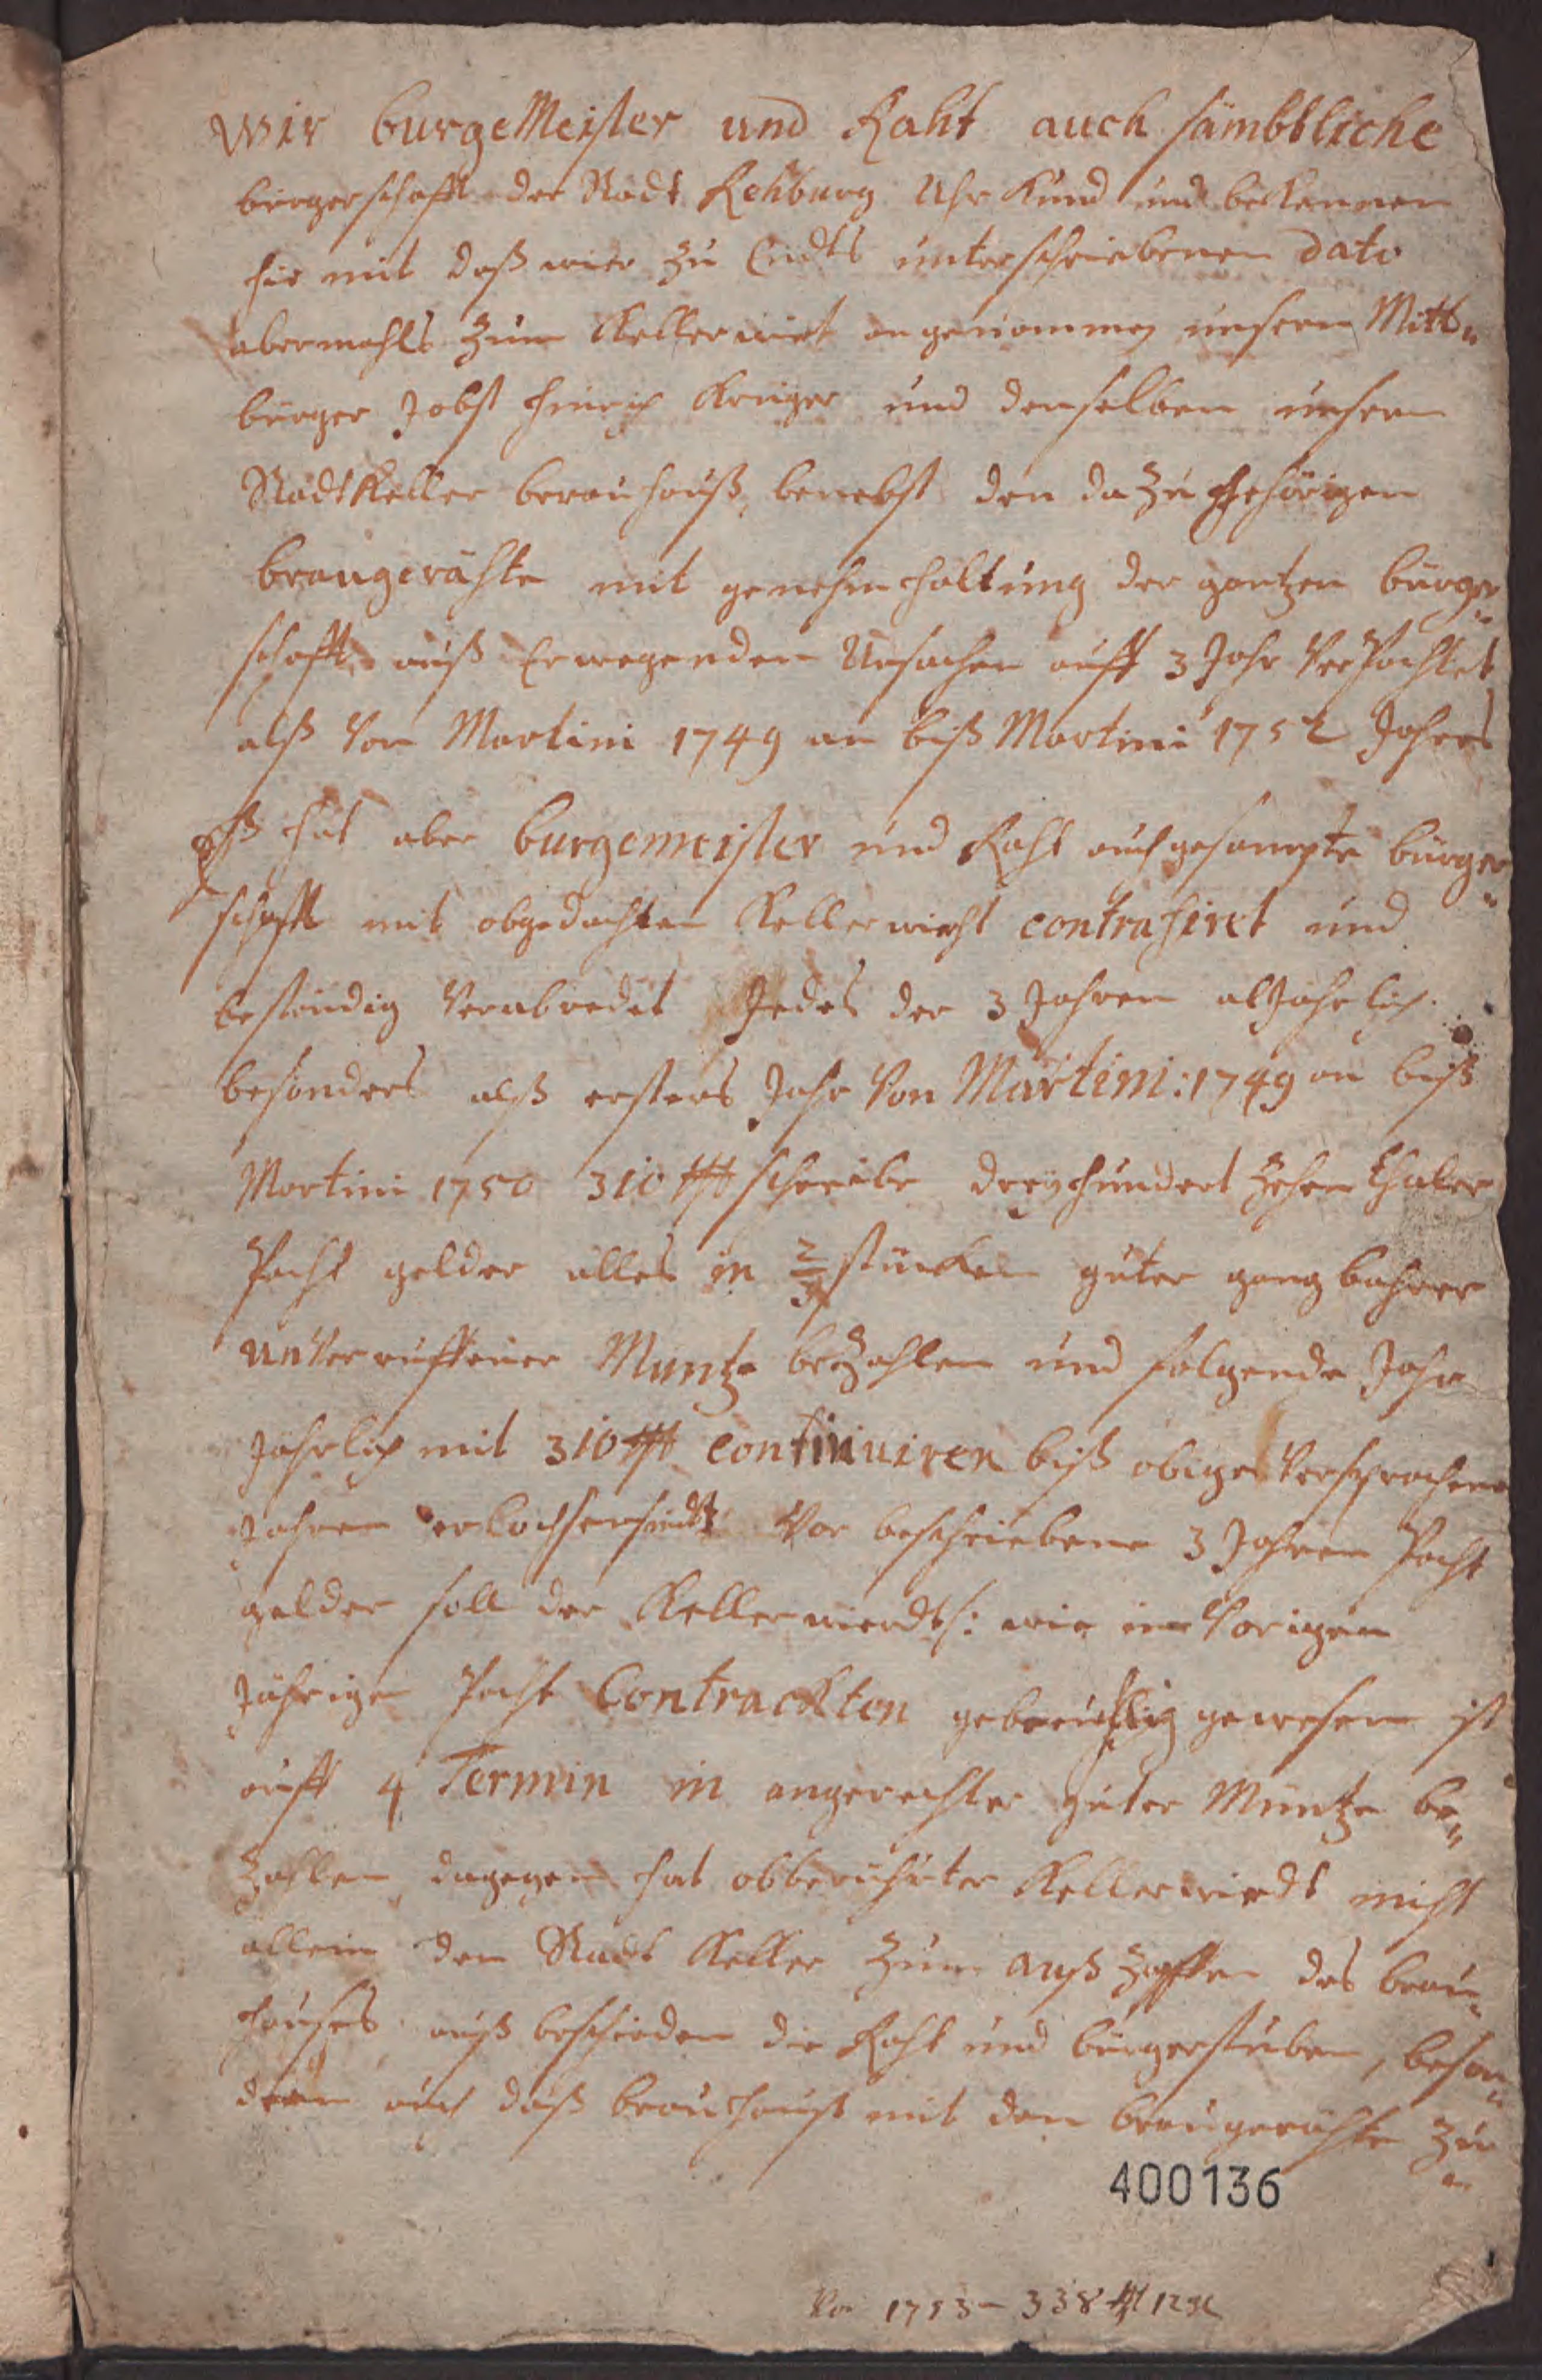 Wir burgeMeister und Raht auch sämbtliche
bürgerschafft der Stadt Rehburg Uhr Kund und bekennen
hie mit daß wier zu Endts unterschriebenen dato
abermahls zum Kellerwirt angenommen unsern Mitt„
bürger Jobst Hinrich Krüger und denselben unsern
Stadtkeller brauhauß, benebst den dazu gehörigen
braugerähte mit genehmhaltung der gantzen bürger„
schafft auß Erwegenden Ursachen auff 3 Jahr Verpachtet
alß Von Martini 1749 an biß Martini 1752 Jahres
Eß hat aber burgemeister und Raht auch gesampte bürger„
schafft mit obgedachten Kellerwirht contrahiret und
beständig Verabredet Jedes der 3 Jahren alJährlich
besonders alß ersters Jahr Von Martini: 1749 an biß
Martini 1750 310 rthl schreibe dreyhundert Zehen Thaler
Pacht gelder alles in 2/3 stücken guter gangbahrer
unVerruffener Muntze beZahlen und folgende Jahr
Jährlich mit 310 rthl continuiren biß obige Versprochene
Jahren verloschen sindt Vor beschriebene 3 Jahren Pacht
gelder soll der Kellerwierdt: wie im Vorigen
Jährigen Pacht Contrackten gebreuchlig gewesen ist
auff 4 Termin in angerechter guter Müntze be„
Zahlen, dagegen hat obberührter Kellerwirdt nicht
allein den Stadt Keller Zum außZapffen des brau„
hauses auß beschieden die Raht und bürgerstuben, beson„
dern auch daß brauhauß mit den braugerähte Zu
400136
Von 1753 – 338 rthl 12 gr